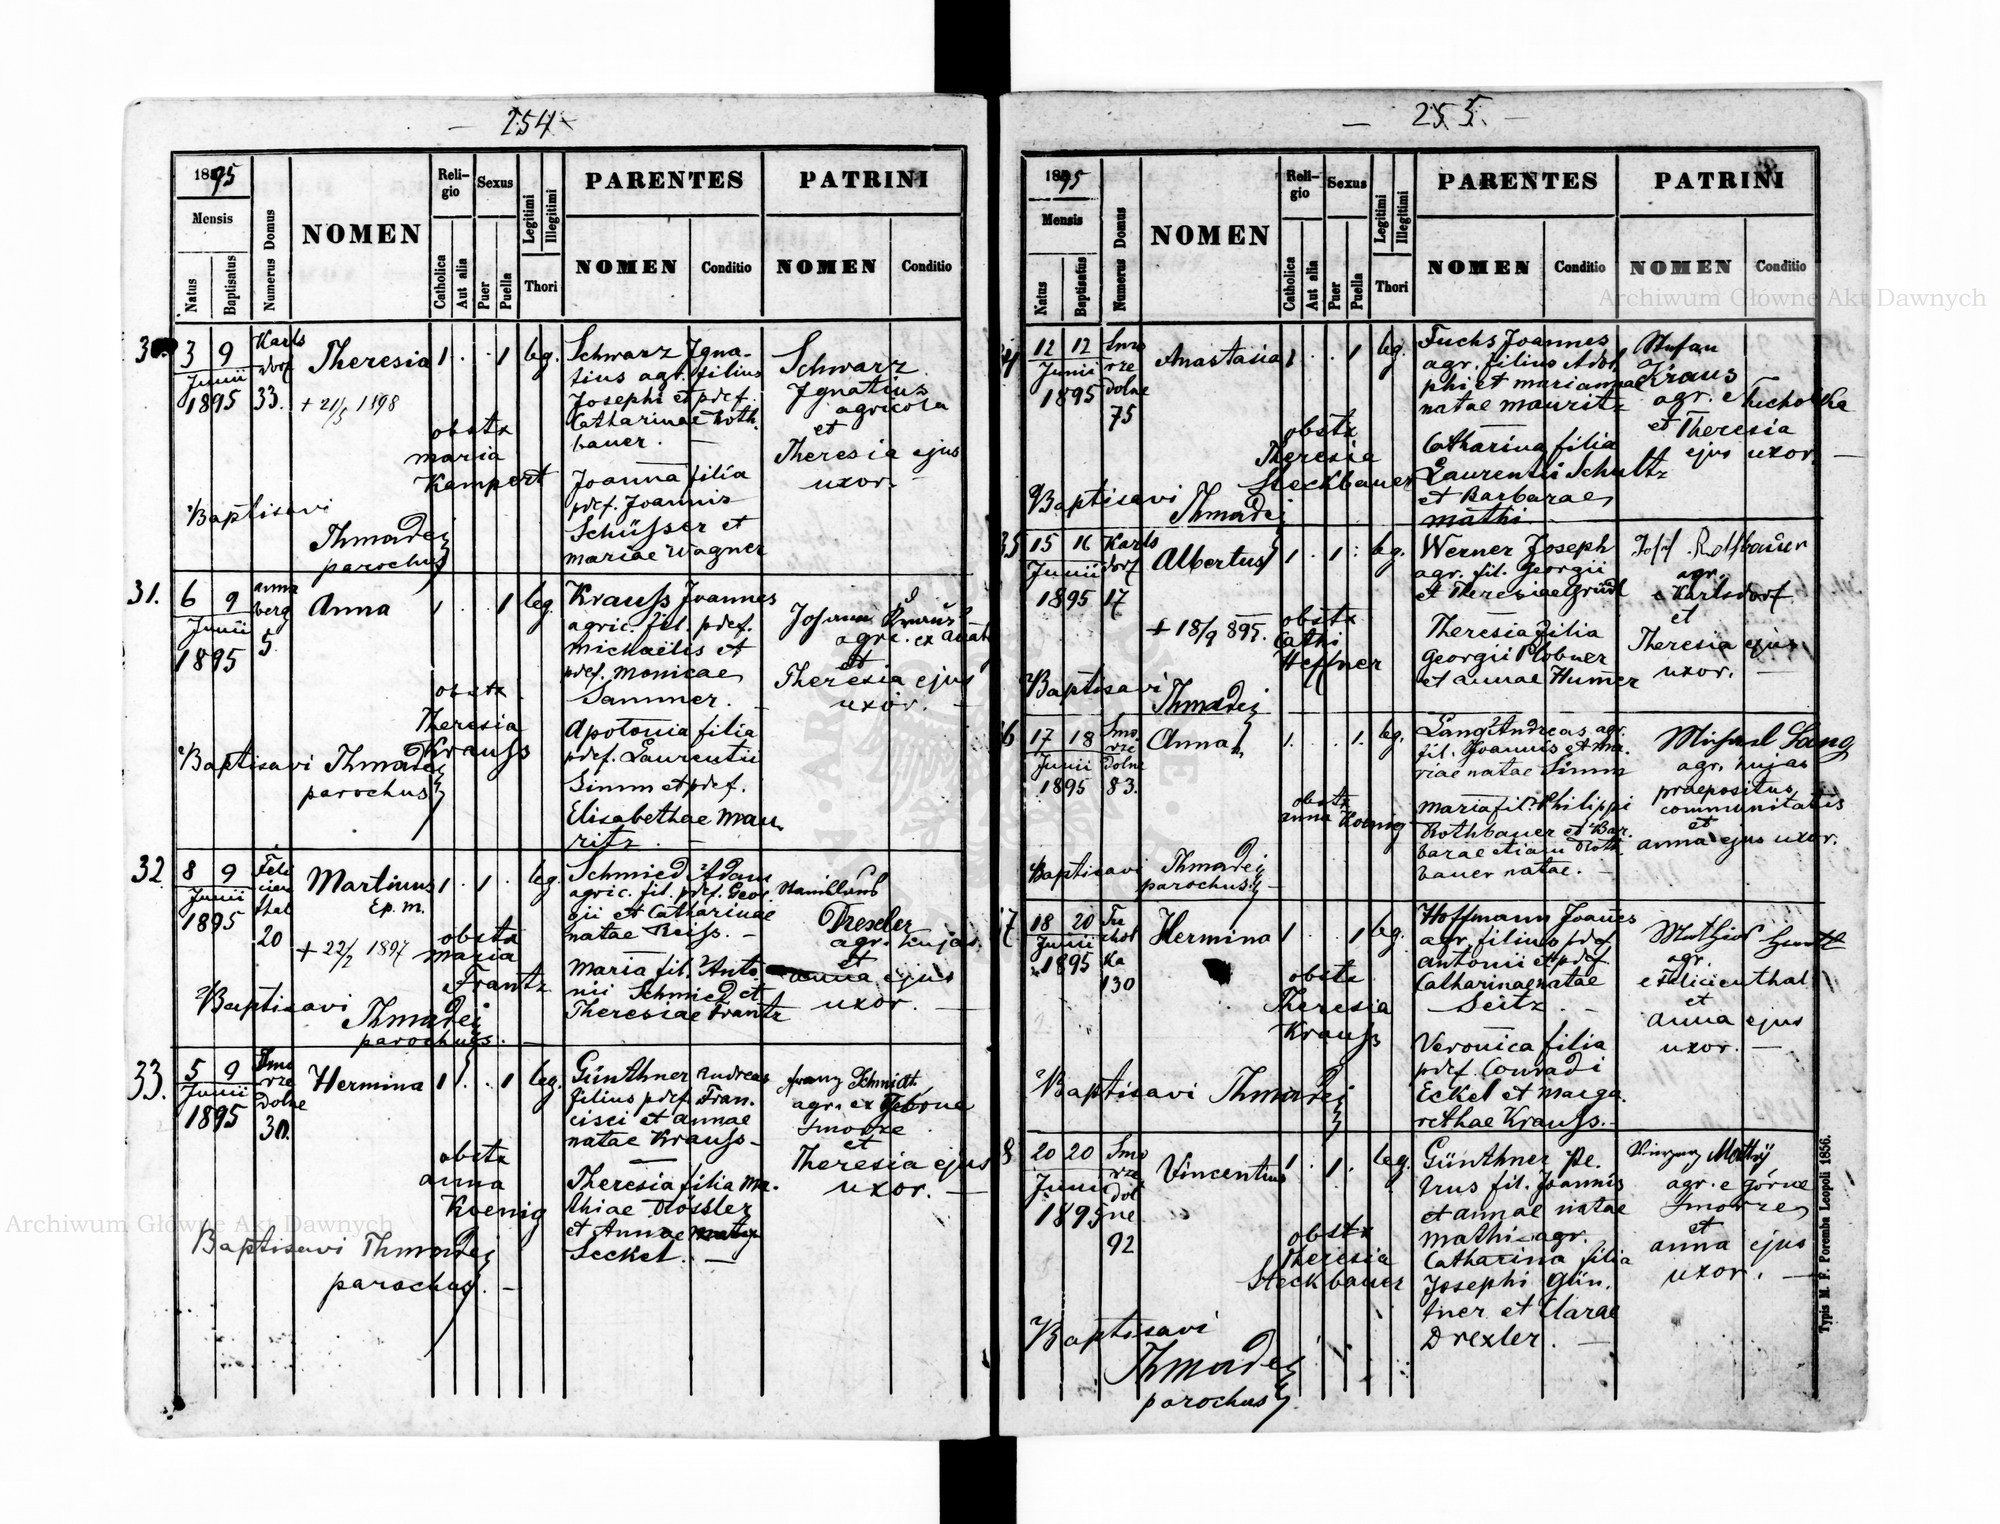 — 254 —
1895
Mensis
Natus
Baptisatus
Numerus Domus
NOMEN
Religio
Catholica
Aut alia
Sexus
Puer
Puella
Legitimi
Illegitimi
Thori
PARENTES
NOMEN
Conditio
PATRINI
NOMEN
Conditio
3 9
Junii
1895
Karls
dorf
33.
Theresia
+ 21/5 1898
1 . . 1 leg.
obstx
Maria
Kempert
Baptisavi
Thmadej
parochus
Schwarz Igna-
tius agr. filius
Josephi et pdef.
Catharinae Roth-
bauer. —
Joanna filia
pdef. Joannis
Schüsser et
Mariae Wagner
Schwarz
Ignatius
agricola
et
Theresia ejus
uxor. —
31.
6 9
Junii
1895
Anna
berg
5.
Anna
1 . . 1 leg.
obstx
Theresia
Krauss
Baptisavi Thmadej
parochus
Krauss Joannes
agric. fil. pdef.
Michaelis et
pdef. Monicae
Sammer. —
Apolonia filia
pdef. Laurentii
Simm et pdef.
Elisabethae Mau-
ritz. —
Johann Kraus
agric. ex
et
Theresia ejus
uxor. —
32
8 9
Junii
1895
Feli
cien
thal
20
Martinus
Ep. m.
+ 22/2 1897
1 . 1 . leg.
obstx
Maria
Frantz
Baptisavi
Thmadej
parochus.
Schmied Adam
agric. fil. pdef. Geor-
gii et Catharinae
natae Reiss. —
Maria fil. Anto-
nii Schmied et
Theresiae Frantz
Stanislaus
Drexler
agr. hujas.
et
Anna ejus
uxor. —
33.
5 9
Junii
1895
Smo
rze
Dolne
30.
Hermina
1 . . 1 leg.
obstx
Anna
Koenig
Baptisavi Thmadej
parochus. —
Günthner Andreas
filius pdef. Fran-
cisci et Annae
natae Krauss —
Theresia filia Ma-
thiae Rössler
et Annae
Seckel. —
Franz Schmidt
agr. ex
Smorze
et
Theresia ejus
uxor. —
— 255. —
1895
Mensis
Natus
Baptisatus
Numerus Domus
NOMEN
Religio
Catholica
Aut alia
Sexus
Puer
Puella
Legitimi
Illegitimi
Thori
PARENTES
NOMEN
Conditio
PATRINI
NOMEN
Conditio
12 12
Junii
1895
Smo
rze
dolne
75
Anastasia
1 . . 1 leg.
obstx
Theresia
Steckbauer
Baptisavi
Thmadej
Fuchs Joannes
agr. filius Adol
phi et Mariannae
natae Mauritz
Catharina filia
Laurentii Schultz
et Barbarae
Mathi. —
Stefan
Kraus
agr. e Tucholka
et Theresia
ejus uxor. —
35
15 16
Junii
1895
Karls
dorf
17
Albertus
+ 18/9 895.
1 . 1 . leg.
obstx
Cathi
Heffner
Baptisavi
Thmadej
Werner Joseph
agr. fil. Georgii
et Theresiae Gründl
Theresia filia
Georgii Plobner
et Annae Humer
Josef Rothbauer
agr.
e Karlsdorf
et
Theresia ejus
uxor. —
6
17 18
Junii
1895
Smo
rze
Dolne
83.
Anna
1. . . 1. leg.
obstx
Anna Koenig
Baptisavi
Thmadej
parochus. —
Lang Andreas agr.
fil. Joannis et Ma-
riae natae Simm
Maria fil. Philippi
Rothbauer et Bar-
barae etiam Roth
bauer natae. —
Michael Lang
agr. hujas
praepositus
communitatis
et
Anna ejus uxor.
7
18 20
Junii
1895
Tu
chol
ka
130
Hermina
1 . . 1 leg.
obstx
Theresia
Krauss
Baptisavi Thmadej
Hoffmann Joañes
agr. filius pdef.
Antonii et pdef.
Catharinae natae
Seitz. —
Veronica filia
pdef. Conradi
Eckel et Marga-
rethae Krauss. —
Mathias
agr.
e Felicienthal
et
Anna ejus
uxor. —
8
20 20
Junii
1895
Smo
rze
dol
ne
92
Vincentius
1 . 1 . leg.
obstx
Theresia
Steckbauer
Baptisavi
Thmadej
parochus
Günthner Pe-
trus fil. Joannis
et Annae natae
Mathi agr.
Catharina filia
Josephi Gün-
tner et Clarae
Drexler. —
agr. e górne
Smorze
et
Anna ejus
uxor. —
Typis M. F. Poremba Leopoli 1856.
Archiwum Główne Akt Dawnych
Archiwum Główne Akt Dawnych